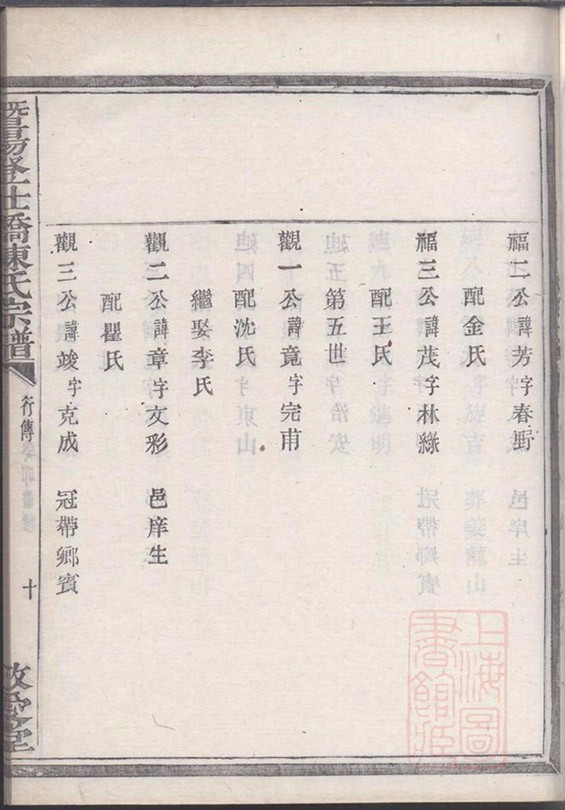 福二公諱芳字春野　邑庠生
配金氏
福三公諱茂字林綠　冠帶鄉賓
配王氏
第五世
觀一公諱竟字完甫
配沈氏
繼娶李氏
觀二公諱章字文彩　邑庠生
配瞿氏
觀三公諱竣字克成　冠帶鄉賓
暨陽登仕橋陳氏宗譜
行傳
十
敬愛堂
上海圖
書館藏